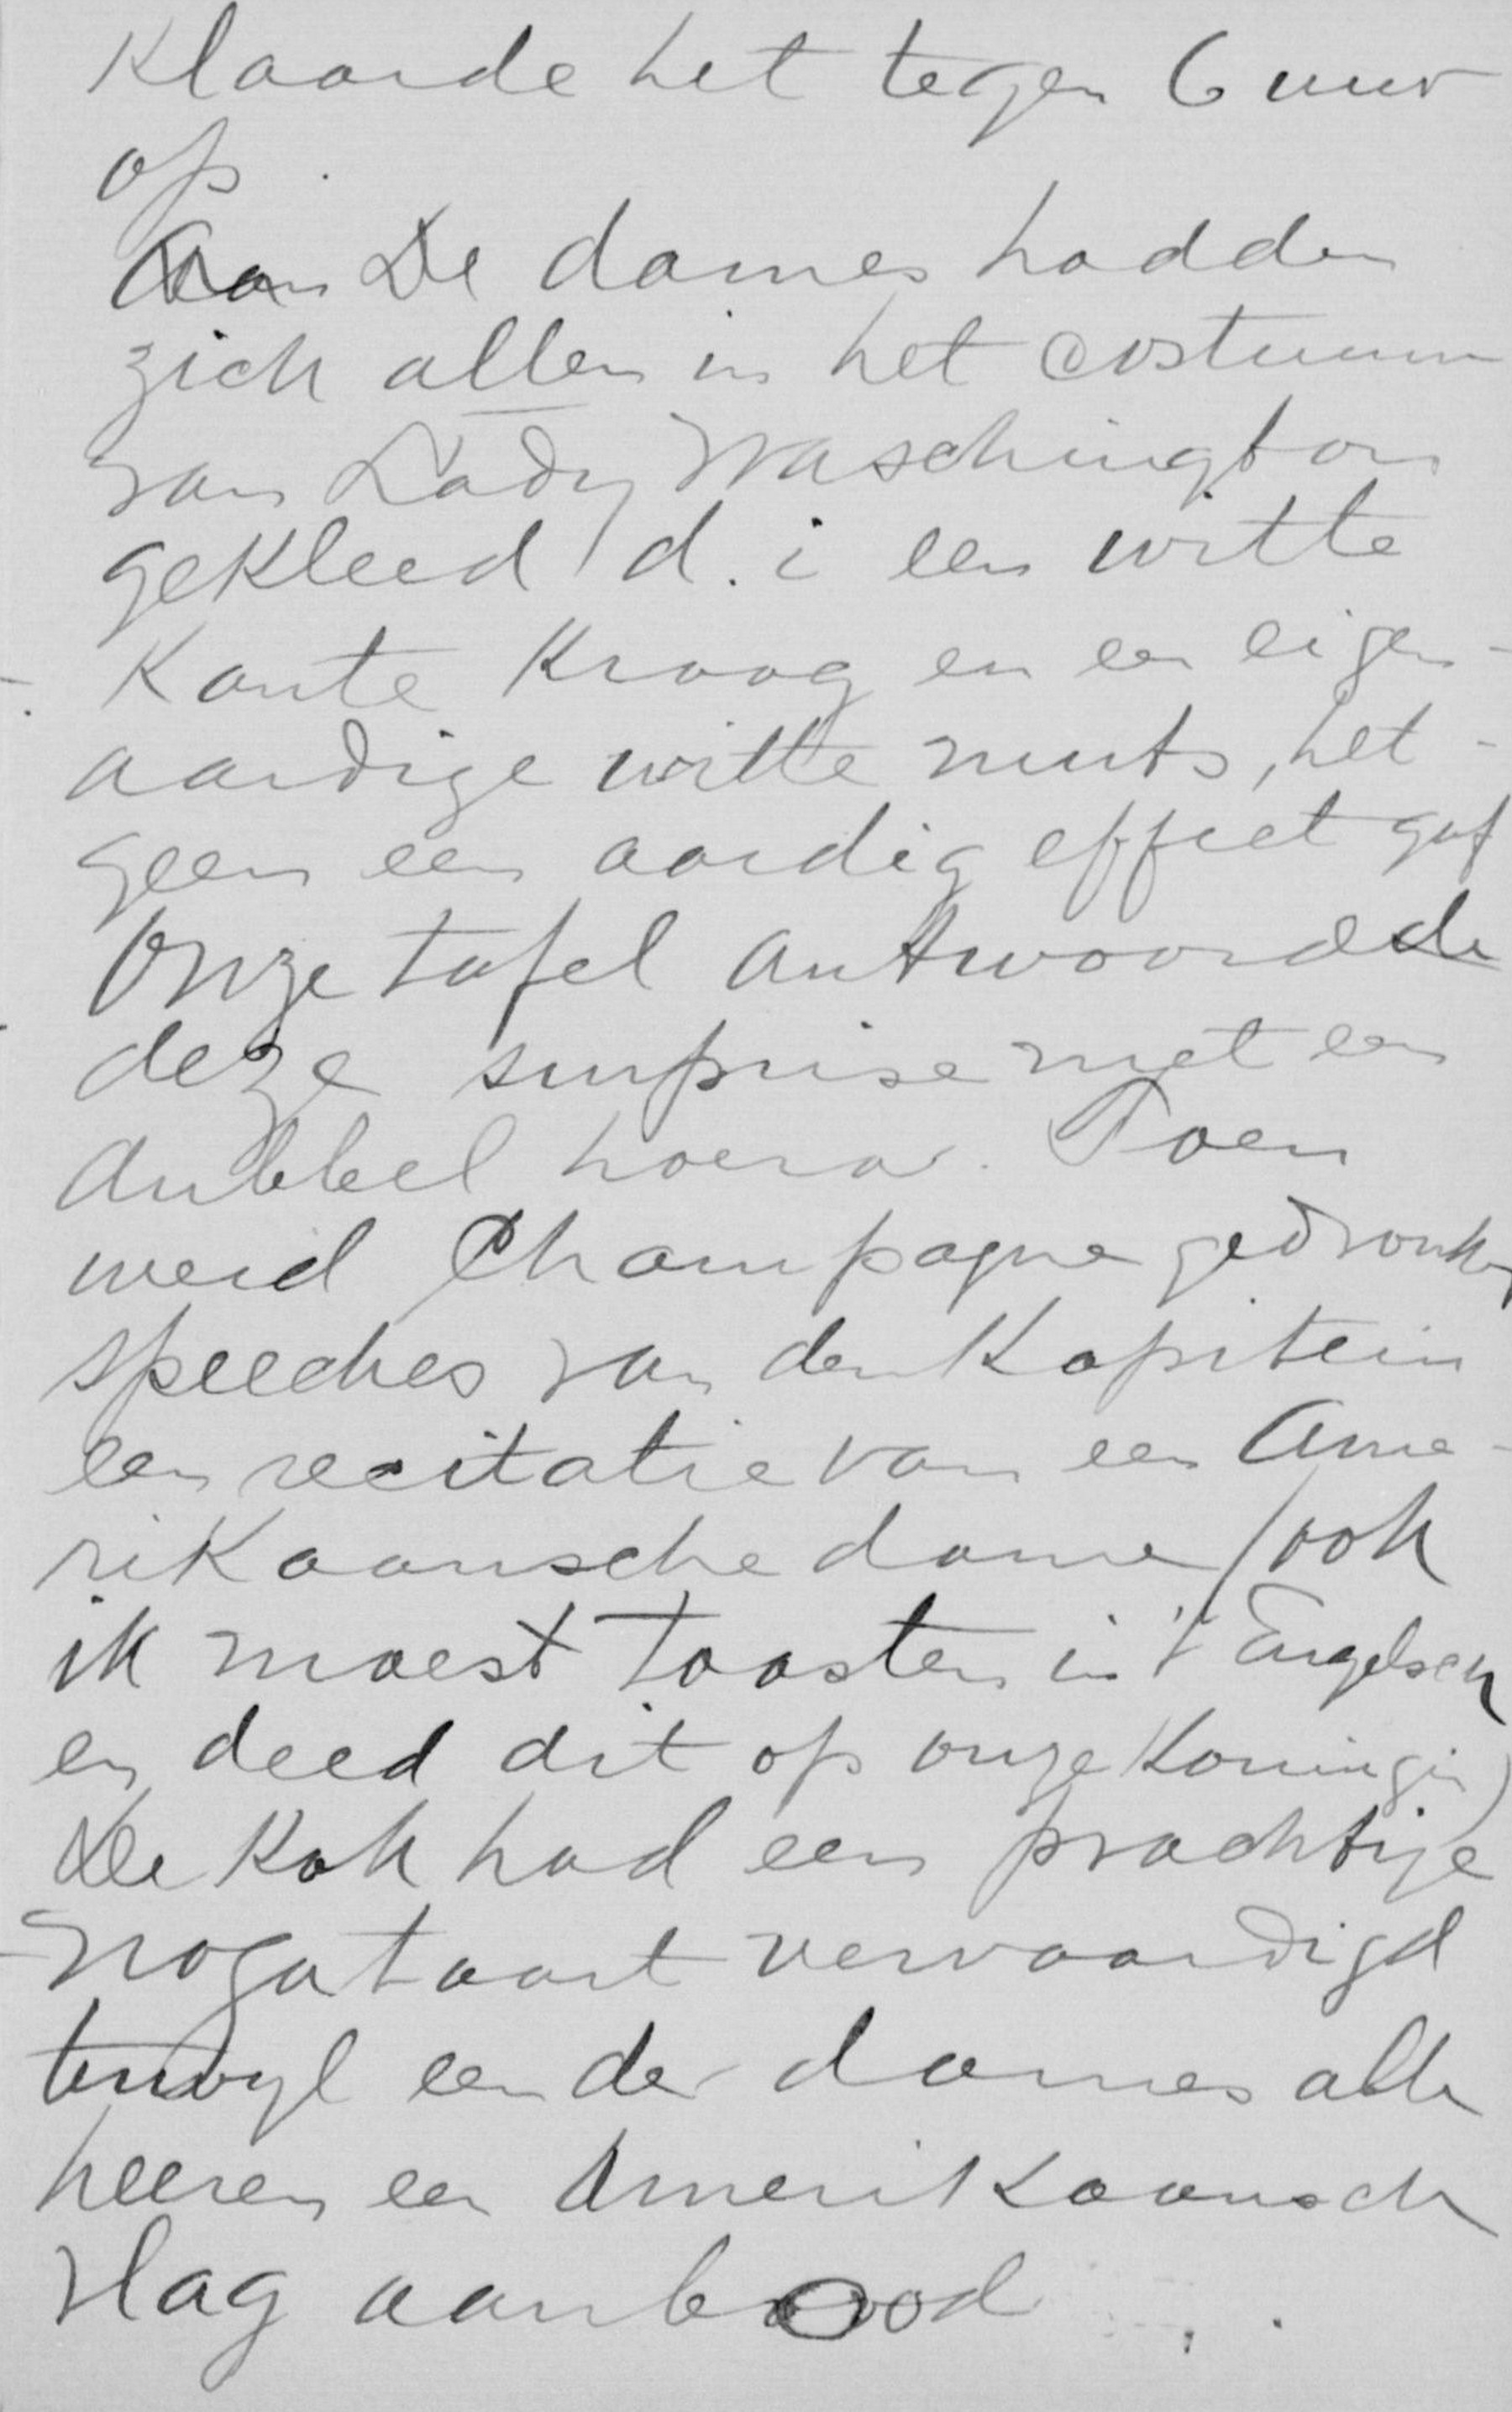 Klaarde het tegen 6 uur
op.
Aan De dames hadden
zich allen in het costuum
van Lady Waschington
gekleed d. i een witte
Kante Kraag en een eigen-
aardige witte muts, het-
geen een aardig effect gaf
Onze tafel antwoordde
deze surprise met een
dubbel hoera. Toen
werd Champagne gedronken
speeches van den Kapitein
een recitatie van een Ame-
rikaansche dame (ook
ik moest toasten in 't Engelsch
en deed dit op onze Koningin)
De Kok had een prachtige
nogataart vervaardigd
terwyl een der dames alle
heeren een Amerikaansch
vlag aanbood